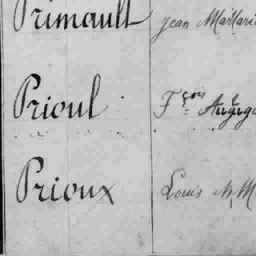 Primault Jean Mathurin
Prioul Fçois Ange
Prioux Louis M M